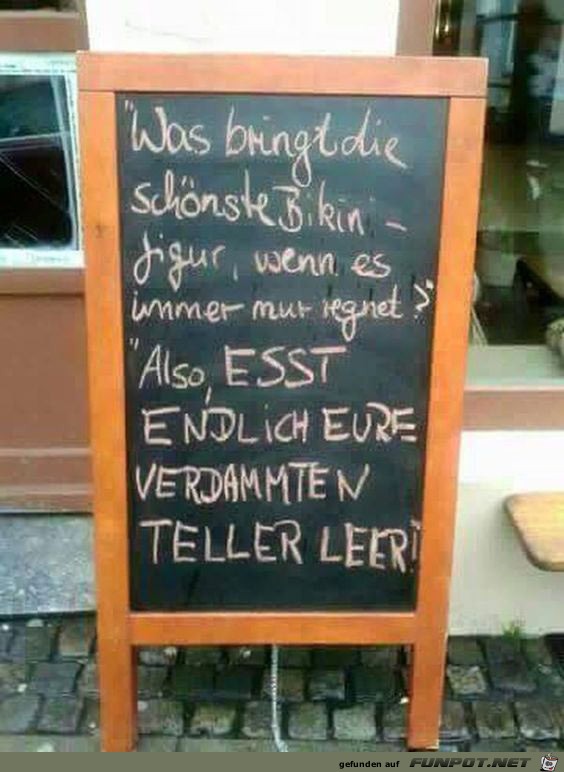 "Was bringt die
schönste Bikini-
figur, wenn es
immer nur regnet?"
"Also, ESST
ENDLICH EURE
VERDAMMTEN
TELLER LEER!"
gefunden auf FUNPOT.NET